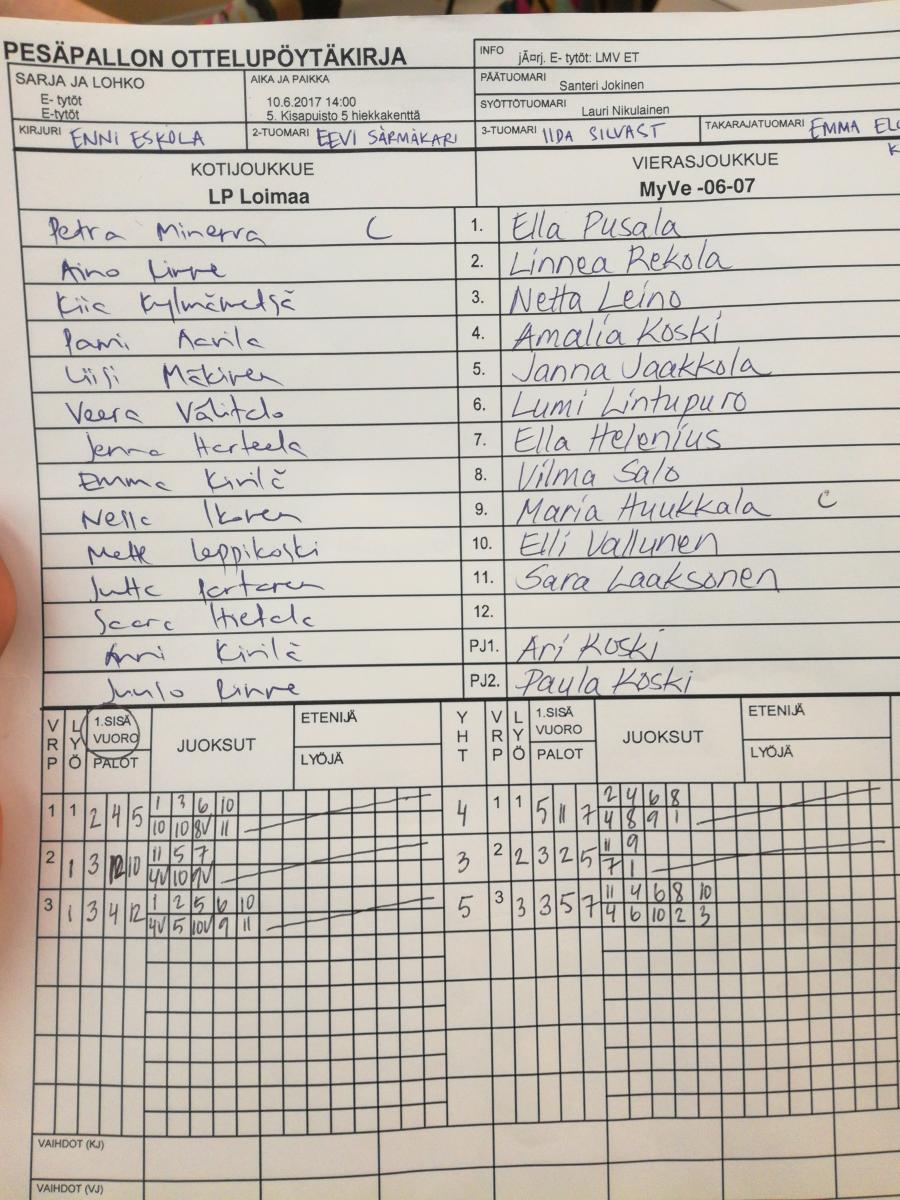 PESÄPALLON OTTELUPÖYTÄKIRJA
INFO jÃ¤rj. E- tytöt: LMV ET
SARJA JA LOHKO
E- tytöt
E-tytöt
AIKA JA PAIKKA
10.6.2017 14:00
5. Kisapuisto 5 hiekkakenttä
PÄÄTUOMARI
Santeri Jokinen
SYÖTTÖTUOMARI
Lauri Nikulainen
KIRJURI ENNI ESKOLA 2-TUOMARI EEVI SÄRMÄKARI 3-TUOMARI IIDA SILVAST TAKARAJATUOMARI EMMA
KOTIJOUKKUE VIERASJOUKKUE
LP Loimaa MyVe -06-07
Petra Minerva C 1. Ella Pusala
Aino Rinne 2. Linnea Rekola
Kiia Kylmämetsä 3. Netta Leino
4. Amalia Koski
Liisi Mäkinen 5. Janna Jaakkola
Veera Välitalo 6. Lumi Lintupuro
Jenna 7. Ella Helenius
Emma Kivilä 8. Vilma Salo
Nella Ikonen 9. Maria Huukkala C
Leppikoski 10. Elli Vallunen
Jutta Partanen 11. Sara Laaksonen
Saara Hietala 12.
Anni Kivilä PJ1. Ari Koski
Juuso Rinne PJ2. Paula Koski
VRP LYÖ 1.SISÄ VUORO PALOT JUOKSUT ETENIJÄ LYÖJÄ YHT VRP LYÖ 1.SISÄ VUORO PALOT JUOKSUT ETENIJÄ LYÖJÄ
1 1 2 4 5 1 3 6 10 4 1 1 5 11 7 2 4 6 8
10 10 8V 11 4 8 9 1
2 1 3 12 10 11 5 7 3 2 2 3 2 5 11 9
4V 10 9V 7 1
3 1 3 4 12 1 2 5 6 10 5 3 3 3 5 7 11 4 6 8 10
4V 5 10V 9 11 4 6 10 2 3
VAIHDOT (KJ)
VAIHDOT (VJ)